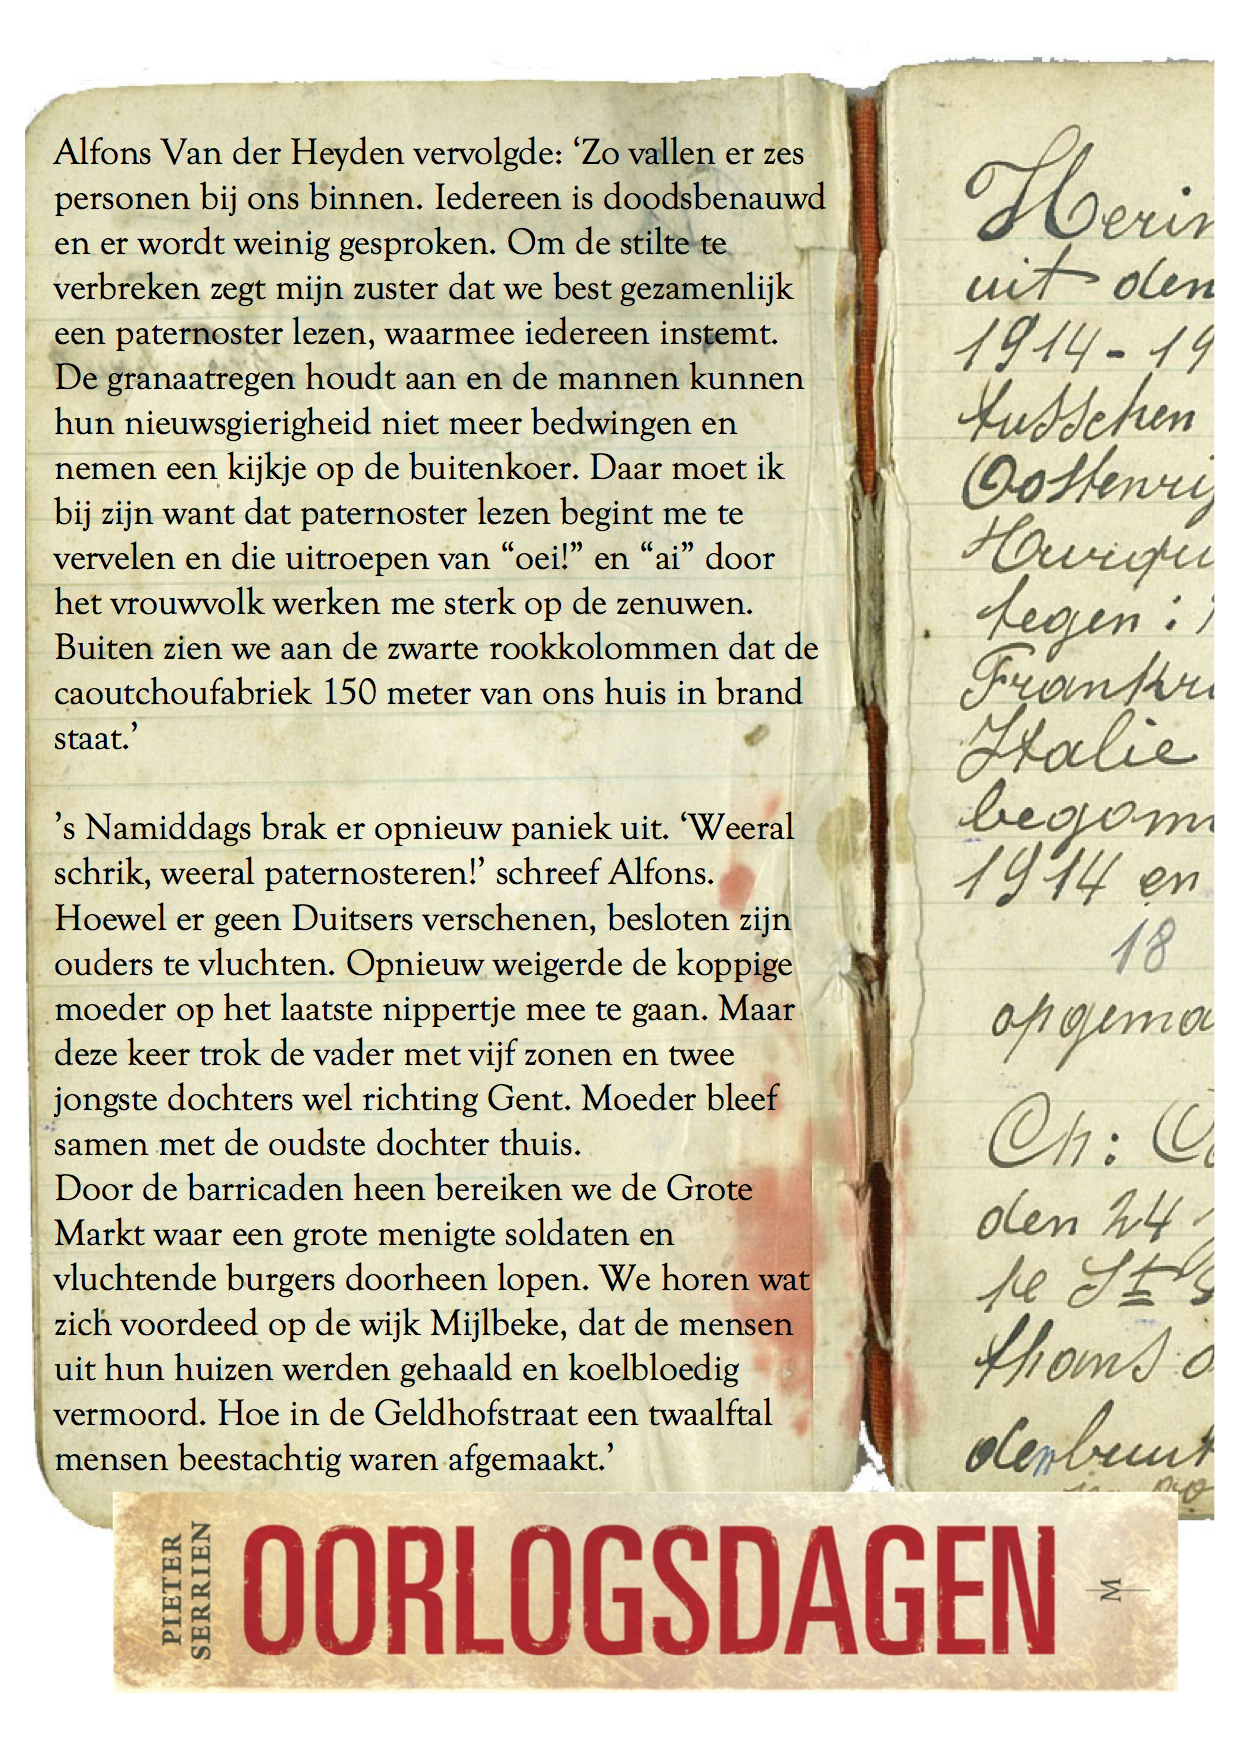 Alfons Van der Heyden vervolgde: ‘Zo vallen er zes
personen bij ons binnen. Iedereen is doodsbenauwd
en er wordt weinig gesproken. Om de stilte te
verbreken zegt mijn zuster dat we best gezamenlijk
een paternoster lezen, waarmee iedereen instemt.
De granaatregen houdt aan en de mannen kunnen
hun nieuwsgierigheid niet meer bedwingen en
nemen een kijkje op de buitenkoer. Daar moet ik
bij zijn want dat paternoster lezen begint me te
vervelen en die uitroepen van “oei!” en “ai” door
het vrouwvolk werken me sterk op de zenuwen.
Buiten zien we aan de zwarte rookkolommen dat de
caoutchoufabriek 150 meter van ons huis in brand
staat.’
’s Namiddags brak er opnieuw paniek uit. ‘Weeral
schrik, weeral paternosteren!’ schreef Alfons.
Hoewel er geen Duitsers verschenen, besloten zijn
ouders te vluchten. Opnieuw weigerde de koppige
moeder op het laatste nippertje mee te gaan. Maar
deze keer trok de vader met vijf zonen en twee
jongste dochters wel richting Gent. Moeder bleef
samen met de oudste dochter thuis.
Door de barricaden heen bereiken we de Grote
Markt waar een grote menigte soldaten en
vluchtende burgers doorheen lopen. We horen wat
zich voordeed op de wijk Mijlbeke, dat de mensen
uit hun huizen werden gehaald en koelbloedig
vermoord. Hoe in de Geldhofstraat een twaalftal
mensen beestachtig waren afgemaakt.’
Herin
uit den
1914-19
tusschen
Oostenrij
tegen:
Frankr
Italie
begonn
1914 en
18
opgema
Ch:
den 24
te St
thans
PIETER
SERRIEN
OORLOGSDAGEN
M